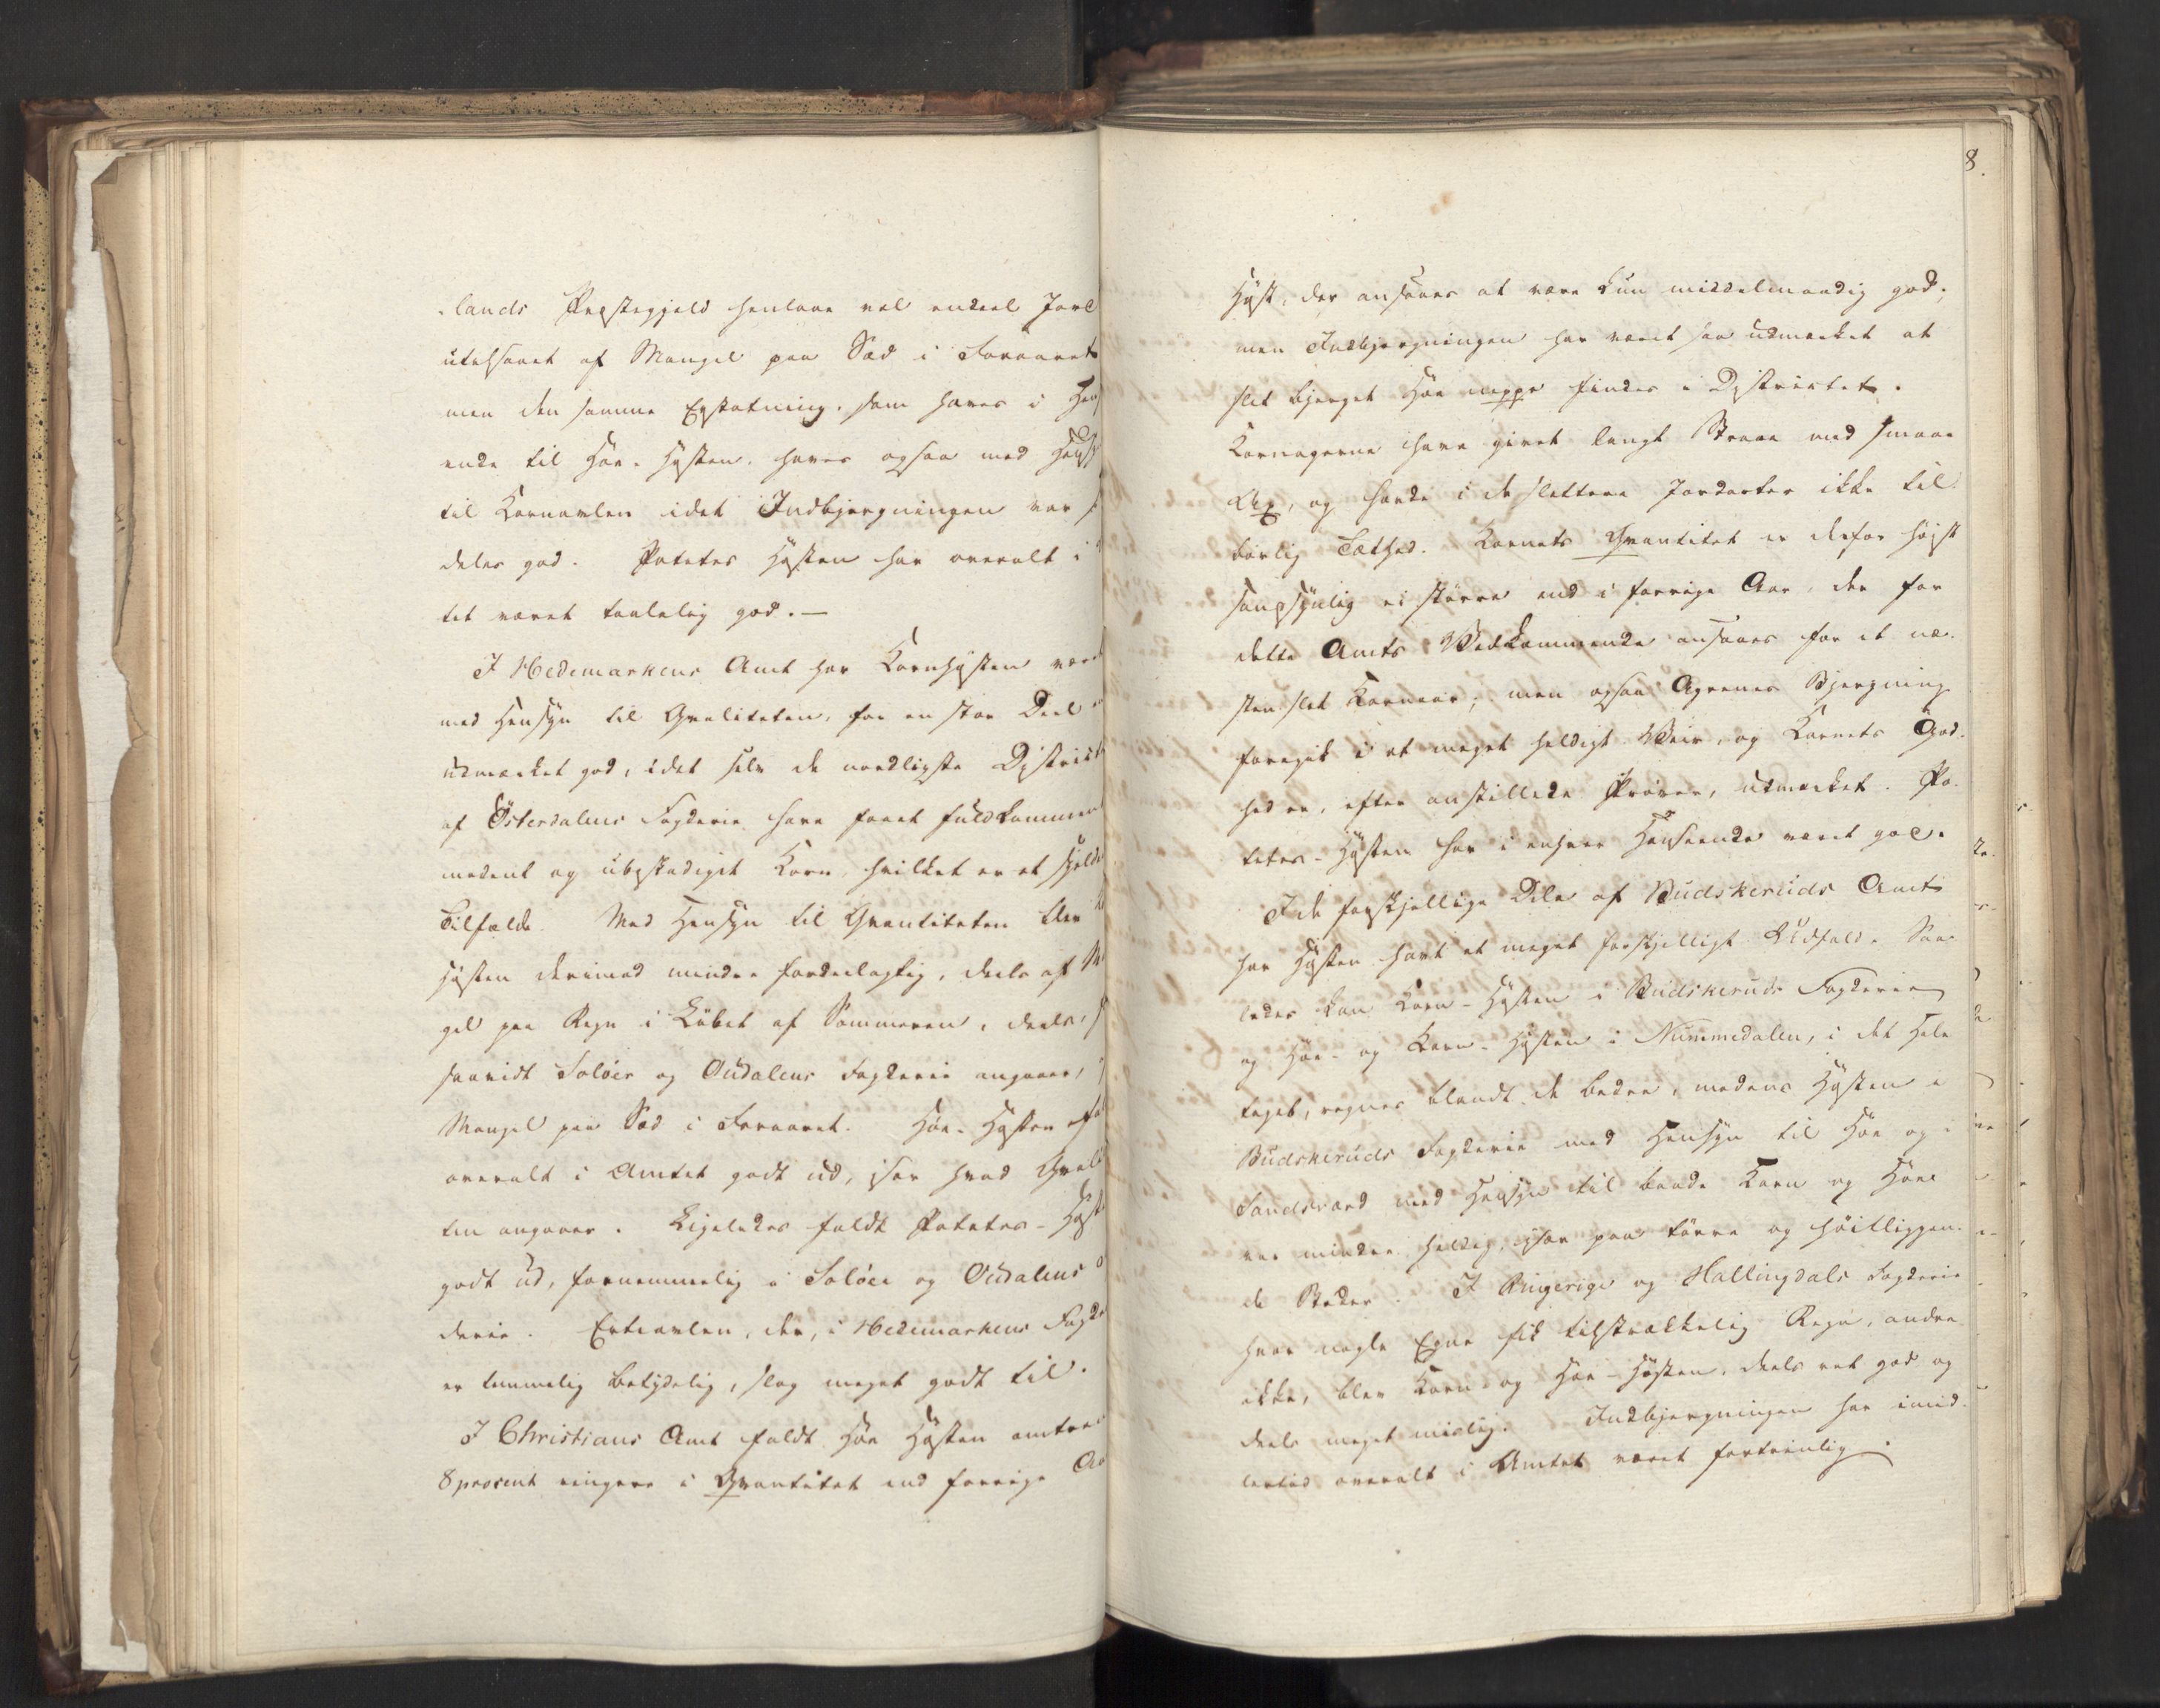 -lands Præstegjeld henlaae vel endeel Jord
utilsaaet af Mangel paa Sæd i Foraaret
men den samme Erstatning, som haves i Hen
ende til Höe-Høsten, haves ogsaa med Hens
til Kornavlen idet Indbjergningen var s
deles god. Potetes Høsten har overalt i
tet været taalelig god. —
I Hedemarkens Amt har Kornhøsten være
med Hensyn til Qvaliteten, for en stor Deel
udmærket god, idet selv de nordligste Distrikt
af Österdalens Fogderie have faaet fuldkommen
modent og ubeskadiget Korn, hvilket er et sjeld
Tilfælde. Med Hensyn til Qvantiteten blev
Høsten derimod mindre fordeelagtig, deels af M
gel paa Regn i Löbet af Sommeren, deels, f
saavidt Soloer og Oudalens Fogderie angaaer,
Mangel paa Sæd i Foraaret. Höe-Høsten
overalt i Amtet godt ud, især hvad Qvali
ten angaaer. Ligeledes faldt Potetes-Høst
godt ud, fornemmelig i Soloer og Oudalens
derie. Erteavlen, der, i Hedemarkens Fogde
er temmelig betydelig, slog meget godt til.
I Christians Amt faldt Höe Høsten omtre
8 procent ringere i Qvantitet end forrige Aa
8.
Høst, der ansaaes at være kun middelmaadig god;
men Indbjergningen har været saa udmærket at
slet bjerget Höe neppe findes i Distriktet.
Kornagerne have givet langt Straae med smaae
Ax, og havde i de slettere Jordarter ikke til
börlig Tæthed. Kornets Qvantitet er derfor höist
sandsynlig ei större end i forrige Aar, der for
dette Amts Vedkommende ansaaes for et næ-
sten slet Kornaar; men ogsaa Agrenes Bjergning
foregik i et meget heldigt Veir, og Kornets God-
hed er, efter anstillede Pröver, udmærket. Po-
tetes-Høsten har i enhver Henseende været god.
I de forskjellige Dele af Budskeruds Amt
har Høsten havt et meget forskjelligt Udfald. Saa-
ledes kan Korn-Høsten i Budskeruds Fogderie
og Höe- og Korn-Høsten i Nummedalen, i det Hele
taget, regnes blandt de bedre, medens Høsten i
Budskeruds Fogderie med Hensyn til Höe og i
Sandsværd med Hensyn til baade Korn og Höe
var mindre heldig, især paa törre og höitliggen-
de Steder. I Ringerige og Hallingdals Fogderie
hvor nogle Egne fik tilstrækkelig Regn, andre
ikke, blev Korn og Höe-Høsten, deels ret god og
deels meget mislig. Indbjergningen har imid-
lertid overalt i Amtet været fortrinlig.